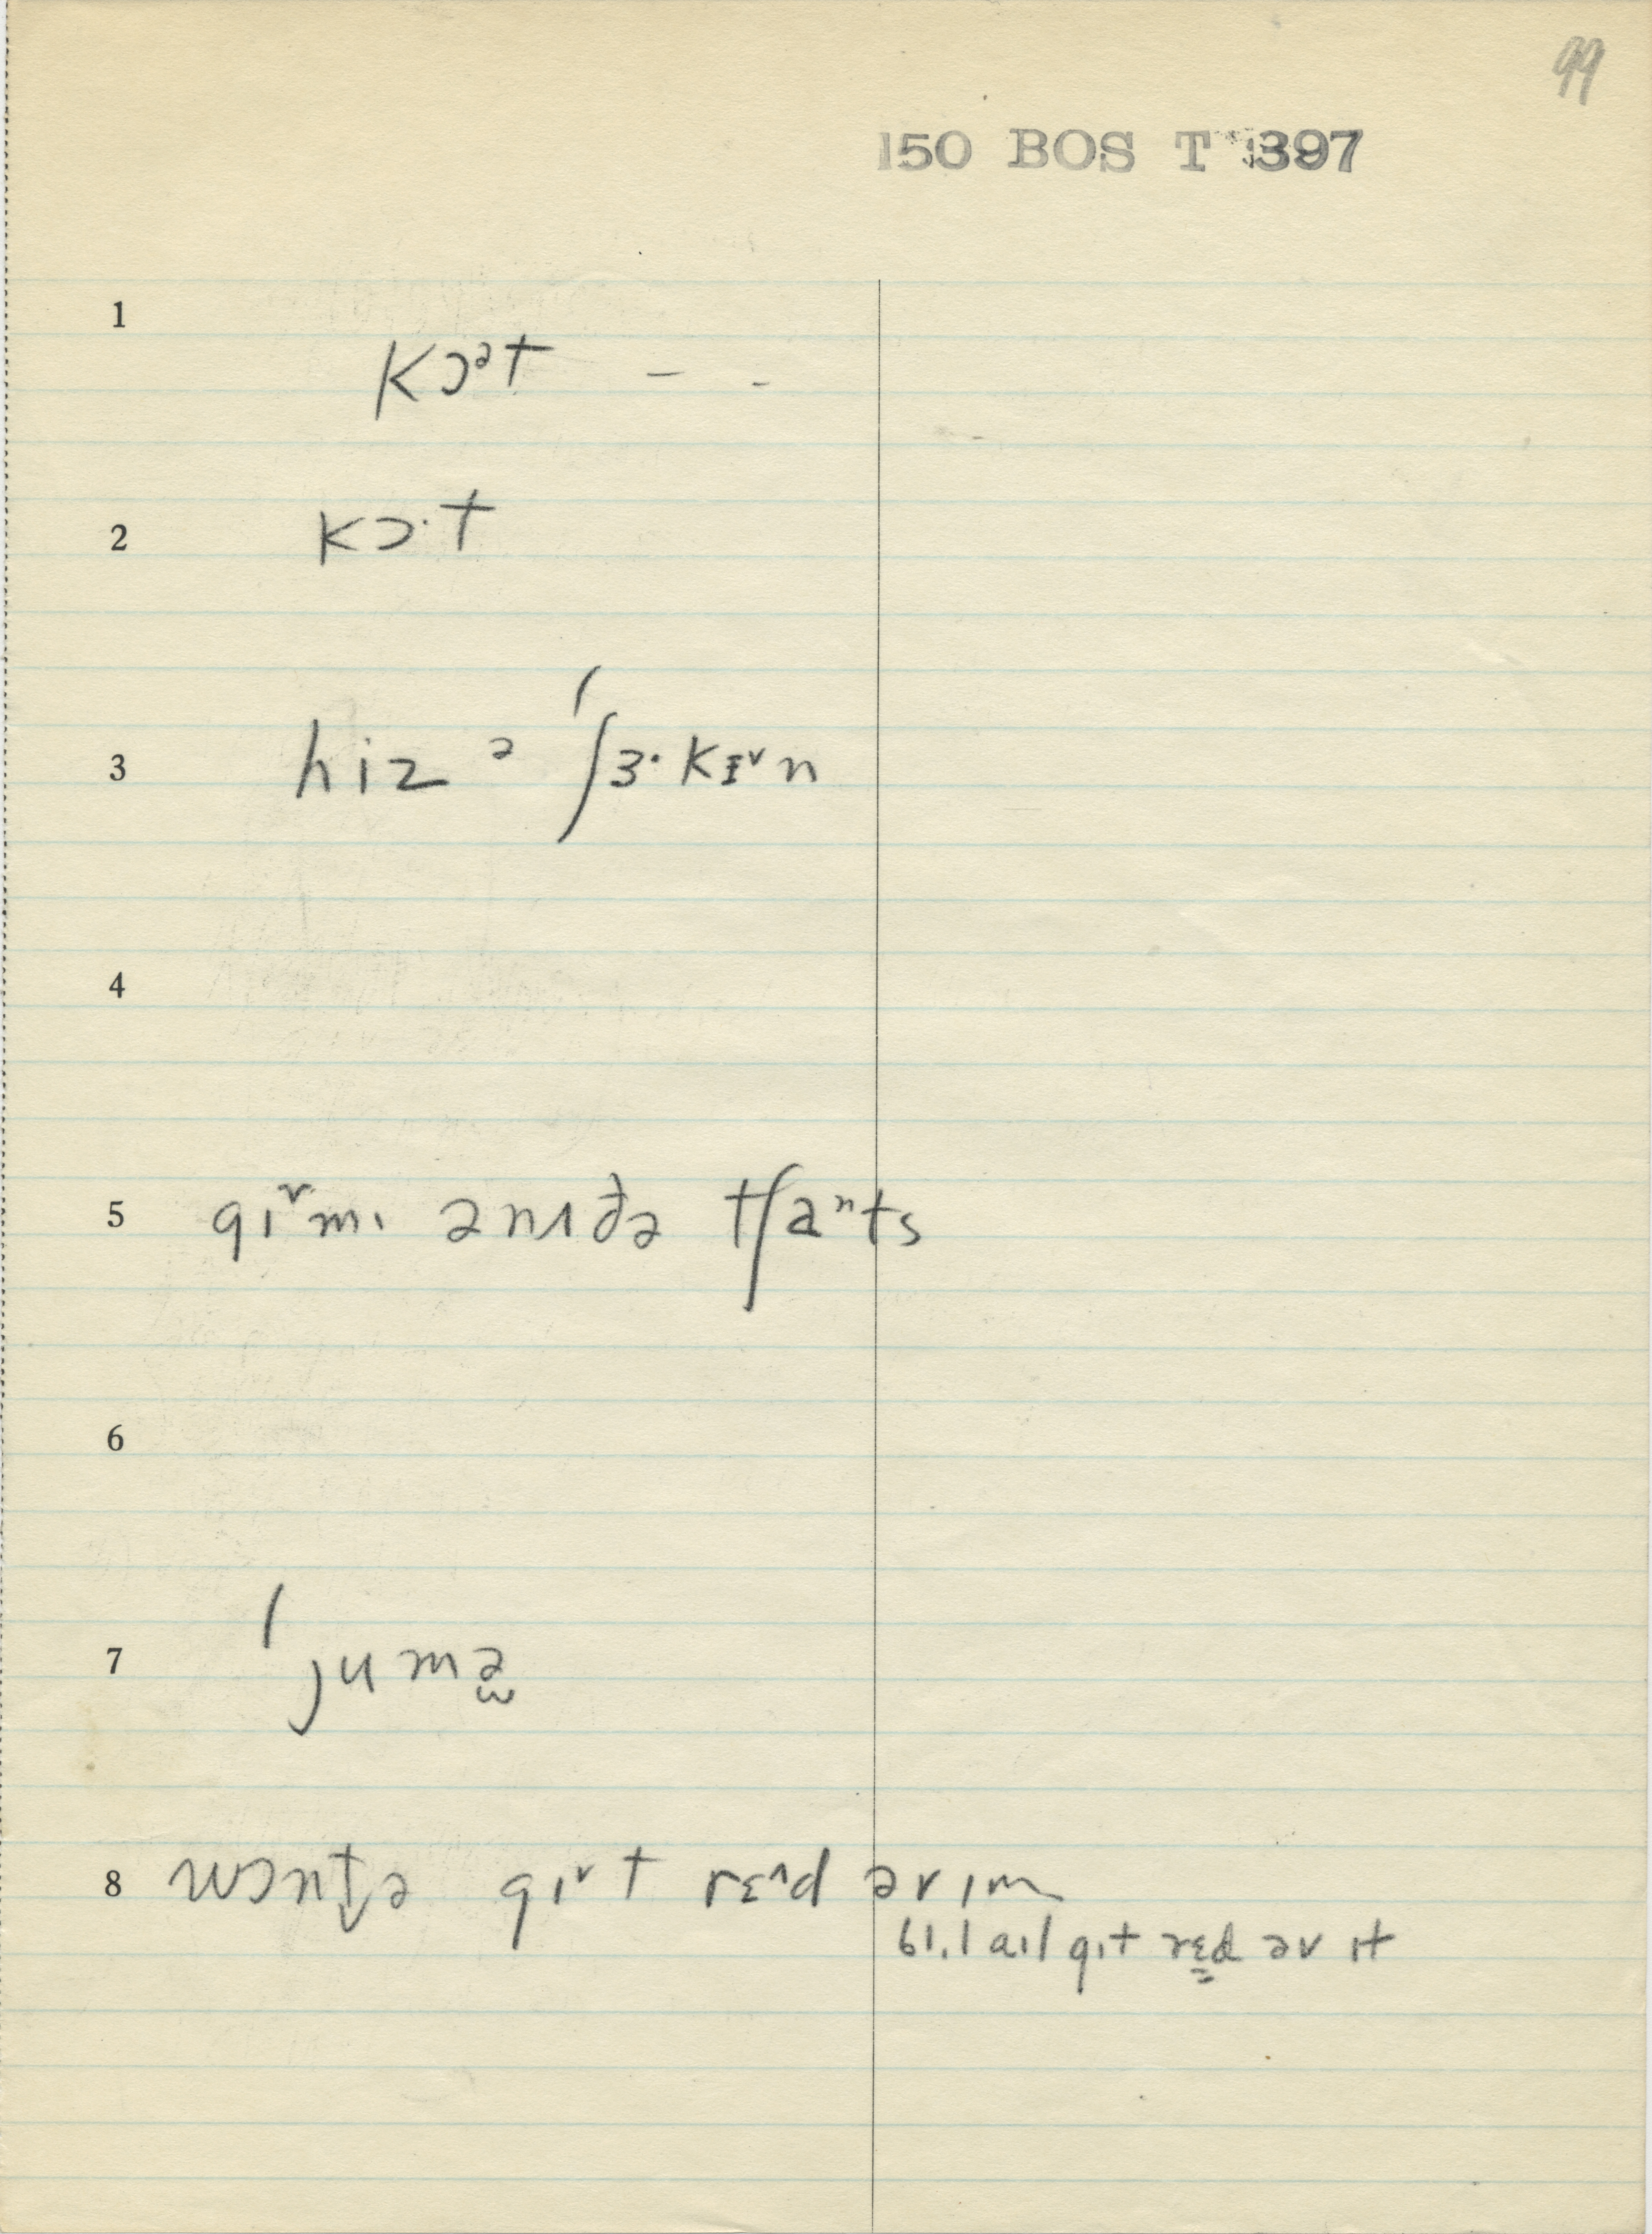 99
150 BOS T 397
1
kɔᵊt – -
2
kɔ·t
3 hiz ə ˈʃɜ·kɪ˅n
4
5 gɪ˅mɪ ənɪðə tʃaⁿts
6
7 ˈjumə̫
8 wɔnt̬ə gɪ˅t rɛ^d əv ɪm
61.1 aɪl gɪt rɛd əv ɪt